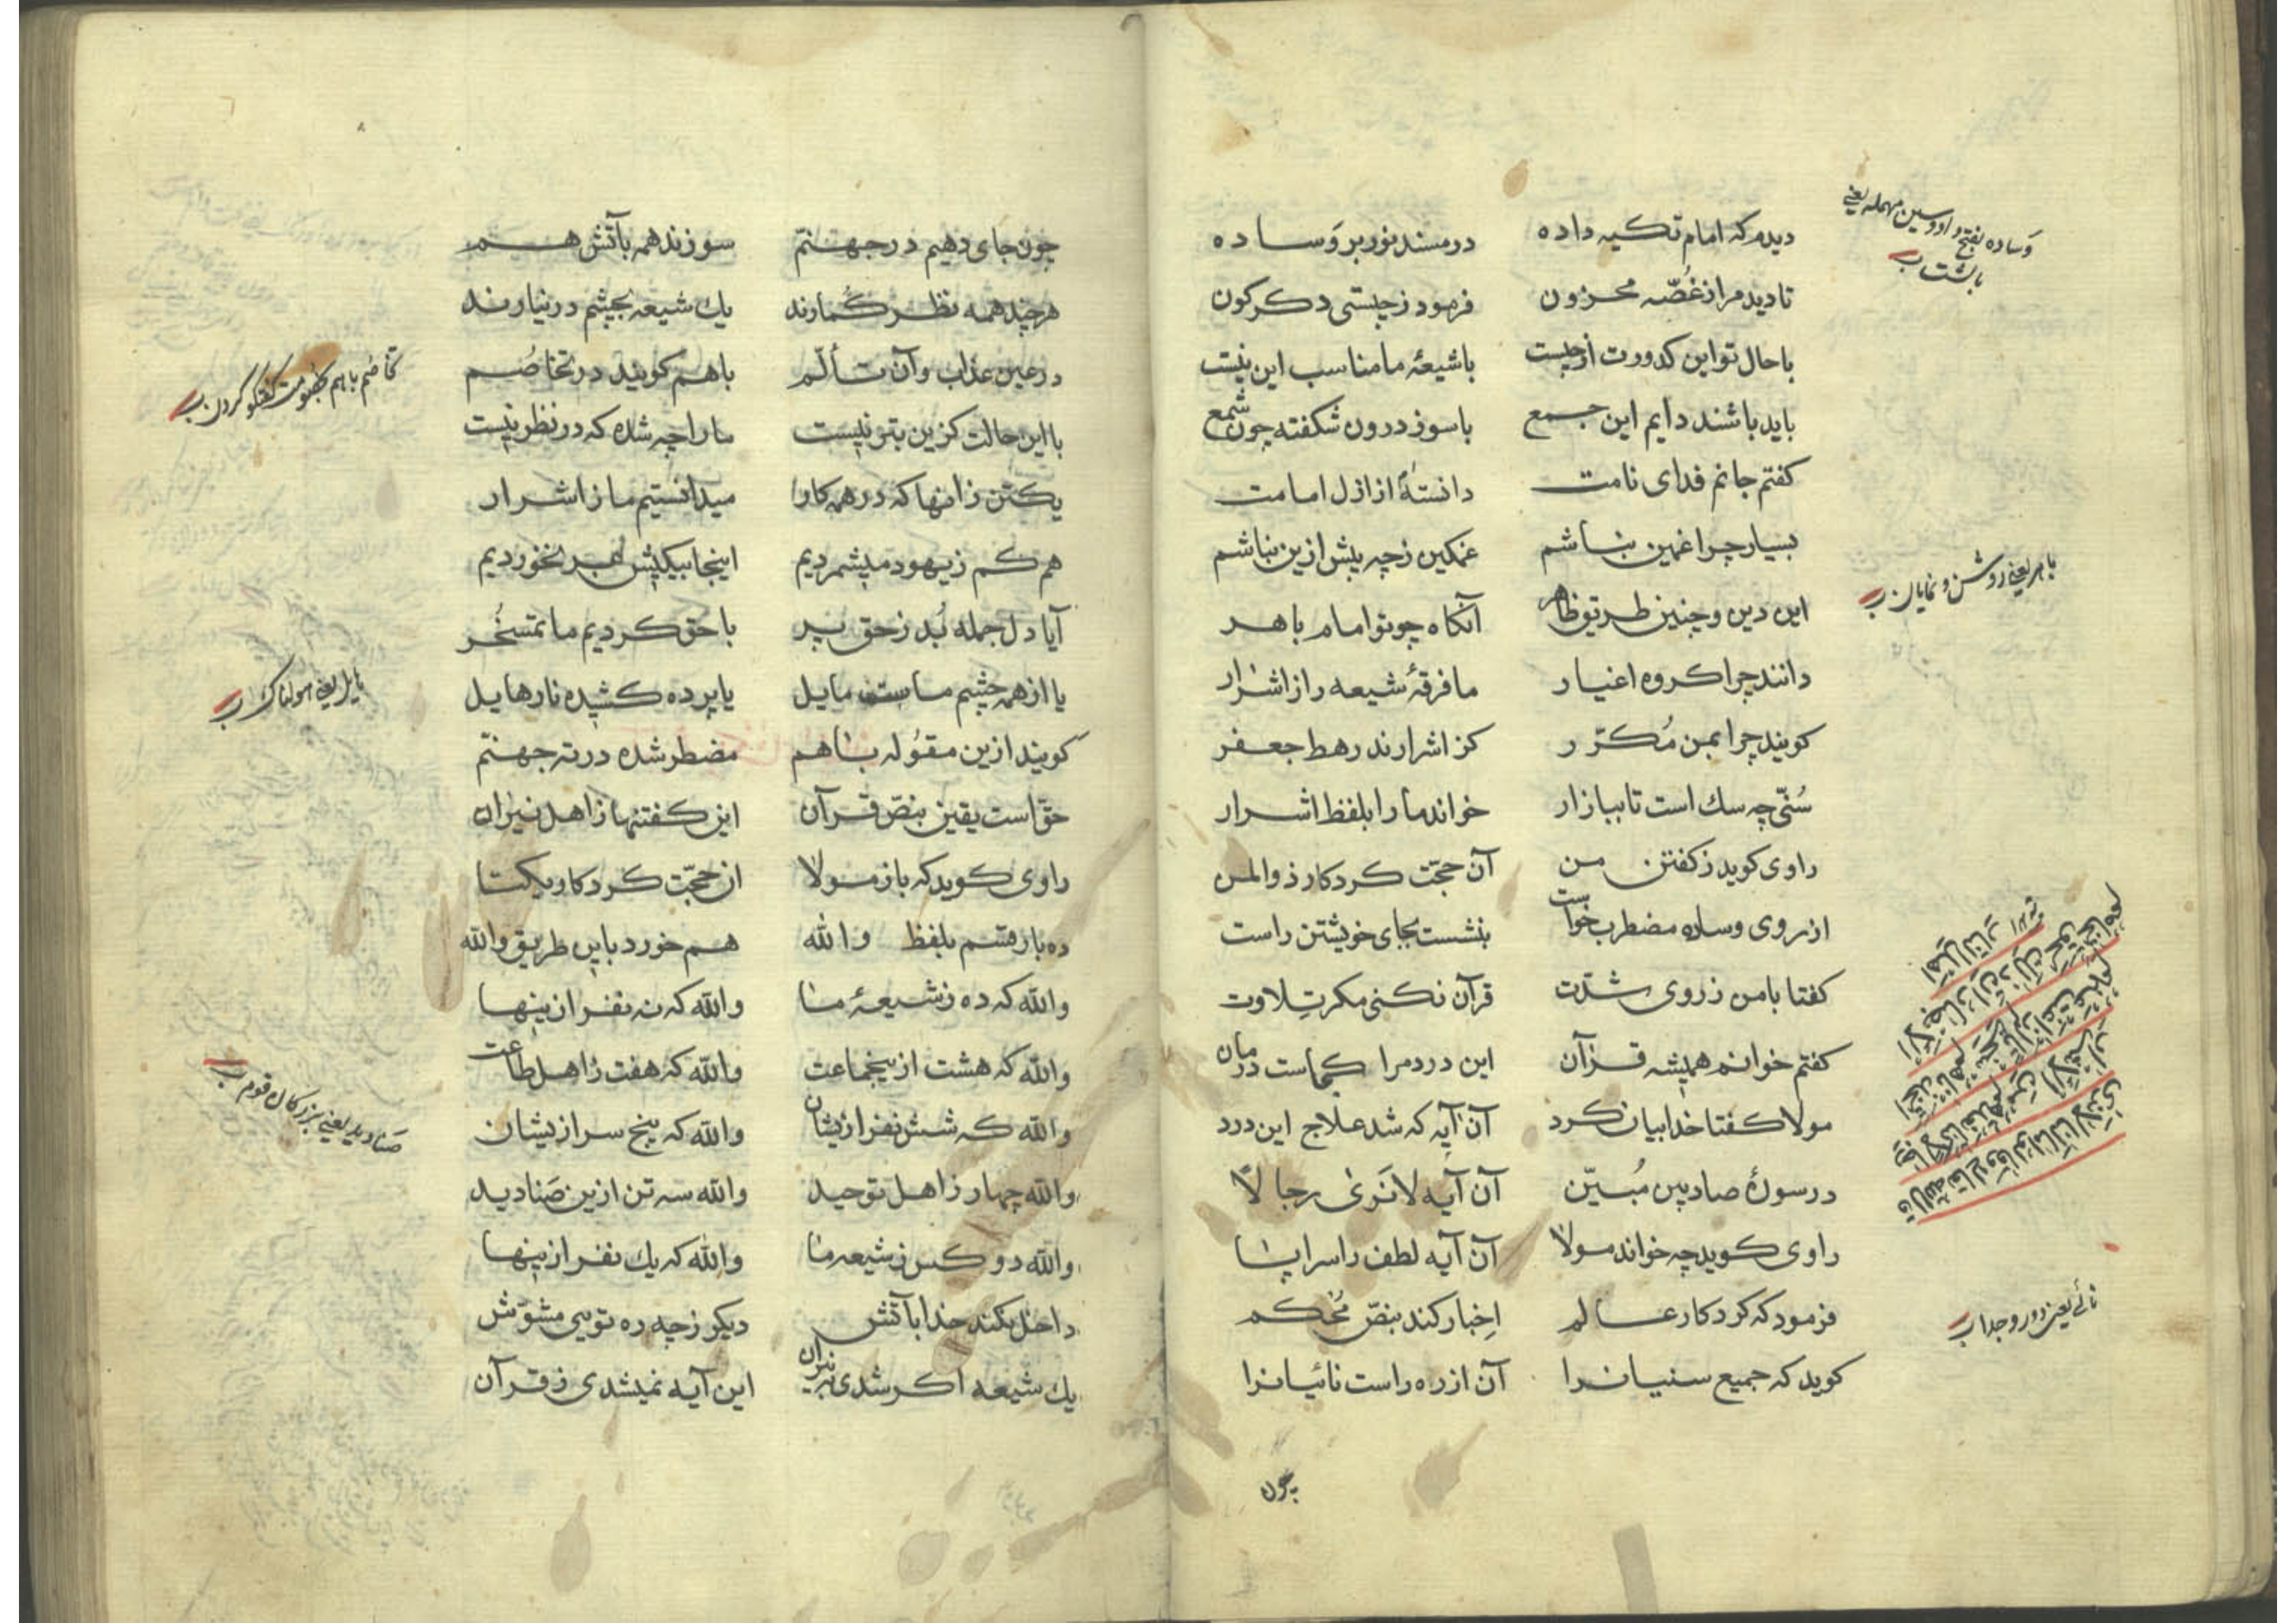 دیدم که امام تکیه داده در مسند نور بر وَساده
تا دید مرا ز غُصّه محزون فرمود ز چیستی دکرکون
با حال تو این کدورت از چیست با شیعهٔ ما مناسب این نیست
باید باشند دایم این جمع با سوز درون شکفته چون شمع
کفتم جانم فدای نامت دانستهٔ از ازل امامت
بسیار چرا غمین نباشم غمکین ز چه بیش ازین نباشم
این دین و چنین طریق ظاهر آنکاه چو تو امام باهر
دانند چرا کروه اغیار ما فرقهٔ شیعه را ز اشرار
کویند چرا بمن مُکرّر کز اشرارند رهط جعفر
سُنّی چه سک است تا ببازار خواند ما را بلفظ اشرار
راوی کوید ز کفتن من آن حجّت کردکار ذو المن
از روی وساده مضطرب خواست بنشست بجای خویشتن راست
کفتا با من ز روی شدّت قرآن نکنی مکر تِلاوت
کفتم خوانم همیشه قرآن این درد مرا کجاست درمان
مولا کفتا خدا بیان کرد آن آیه که شد علاج این درد
در سورهٔ صاد بین مُبیّن آن آیه لا نَرىٰ رجالًا
راوی کوید چه خواند مولا آن آیه لطف را سراپا
فرمود که کردکار عالم اِخبار کند بنصّ مُحکم
کوید که جمیع سنیانرا آن از ره راست نائیانرا
چون
وَساده بفتح واو و سین مهمله یعنی
بالشت ب
باهر یعنی روشن و نمایان ب
نائی یعنی دور و جدا ب
چون جای دهیم در جهنّم سوزند همه بآتش هم
هر چند همه نظر کُمارند یك شیعه بچشم در نیارند
در عین عذاب و آن تألّم باهم کویند در تخاصُم
با این حالت کزین بتر نیست ما را چه شده که در نظر نیست
یکتن زانها که در همه کار میدانستیم ما ز اشرار
هم کم ز یهود میشمردیم اینجا بیکیش بر نخوردیم
آیا دل جمله بُد ز حق پر با حق کردیم ما تمسخُر
یا از همه چشم ماست مایل یا پرده کشیده نار هایل
کویند ازین مقوُله باهم مضطر شده در ته جهنّم
حقّ است یقین بنصّ قرآن این کفتنها ز اهل نیران
راوی کوید که باز مولا آن حجّت کردکار یکتا
ده بار قسم بلفظ والله هم خورد باین طریق والله
والله که ده ز شیعهٔ ما والله که نه نفر ازینها
والله که هشت ازین جماعت والله که هفت ز اهل طاعت
والله که شش نفر ازیشان والله که پنج سر ازیشان
والله چهار ز اهل توحید والله سه تن ازین صَنادید
والله دو کس ز شیعه ما والله که یك نفر ازینها
داخل نکند خدا بآتش دیکر ز چه ره تویی مشوّش
یك شیعه اکر شدی به نیران این آیه نمیشدی ز قرآن
تخاصُم باهم خصومت کفتکو کردن ب
هایل یعنی هولناك ب
صَنادید یعنی بزرکان قوم ب